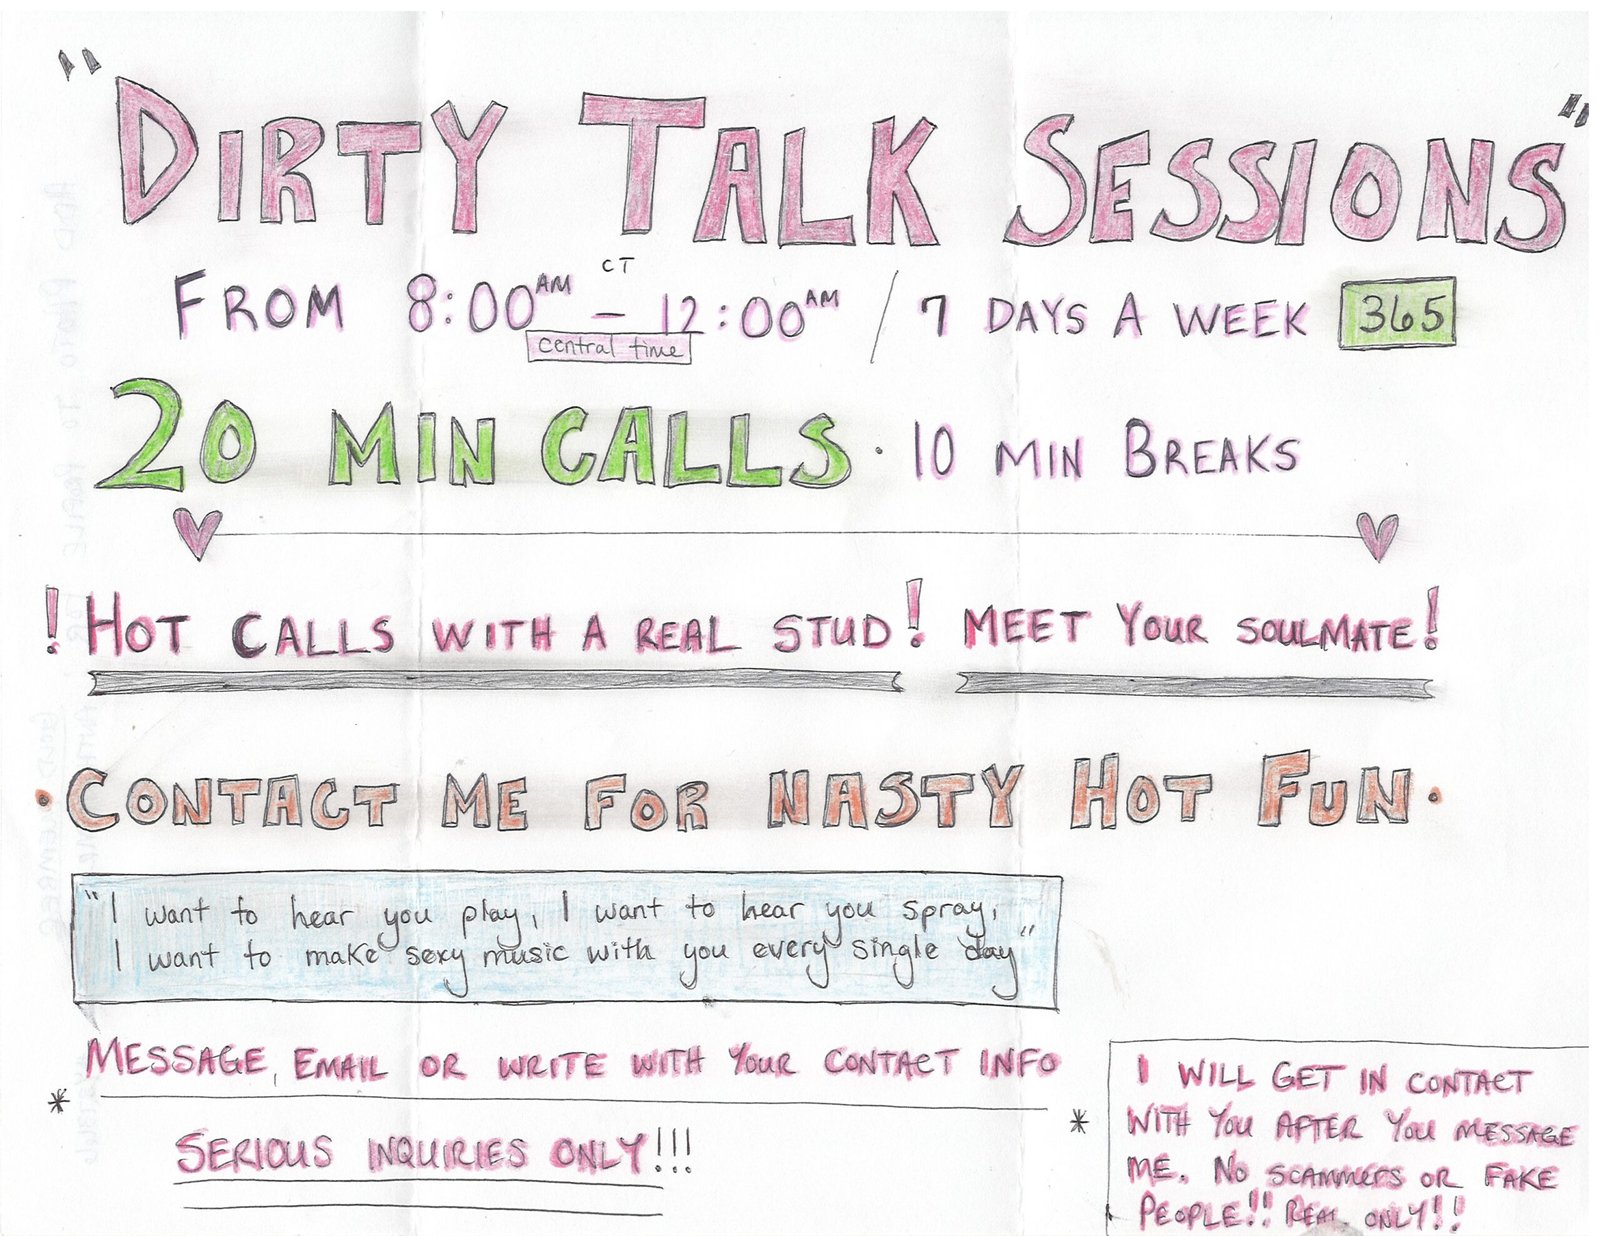 "DIRTY TALK SESSIONS"
FROM 8:00AM CT – 12:00AM / 7 DAYS A WEEK 365
central time
20 MIN CALLS · 10 MIN BREAKS
! HOT CALLS WITH A REAL STUD! MEET YOUR SOULMATE!
• CONTACT ME FOR NASTY HOT FUN •
"I want to hear you play, I want to hear you spray,
I want to make sexy music with you every single day"
MESSAGE, EMAIL OR WRITE WITH YOUR CONTACT INFO
*
SERIOUS INQUIRIES ONLY!!!
* I WILL GET IN CONTACT
WITH YOU AFTER YOU MESSAGE
ME. NO SCAMMERS OR FAKE
PEOPLE!! REAL ONLY!!